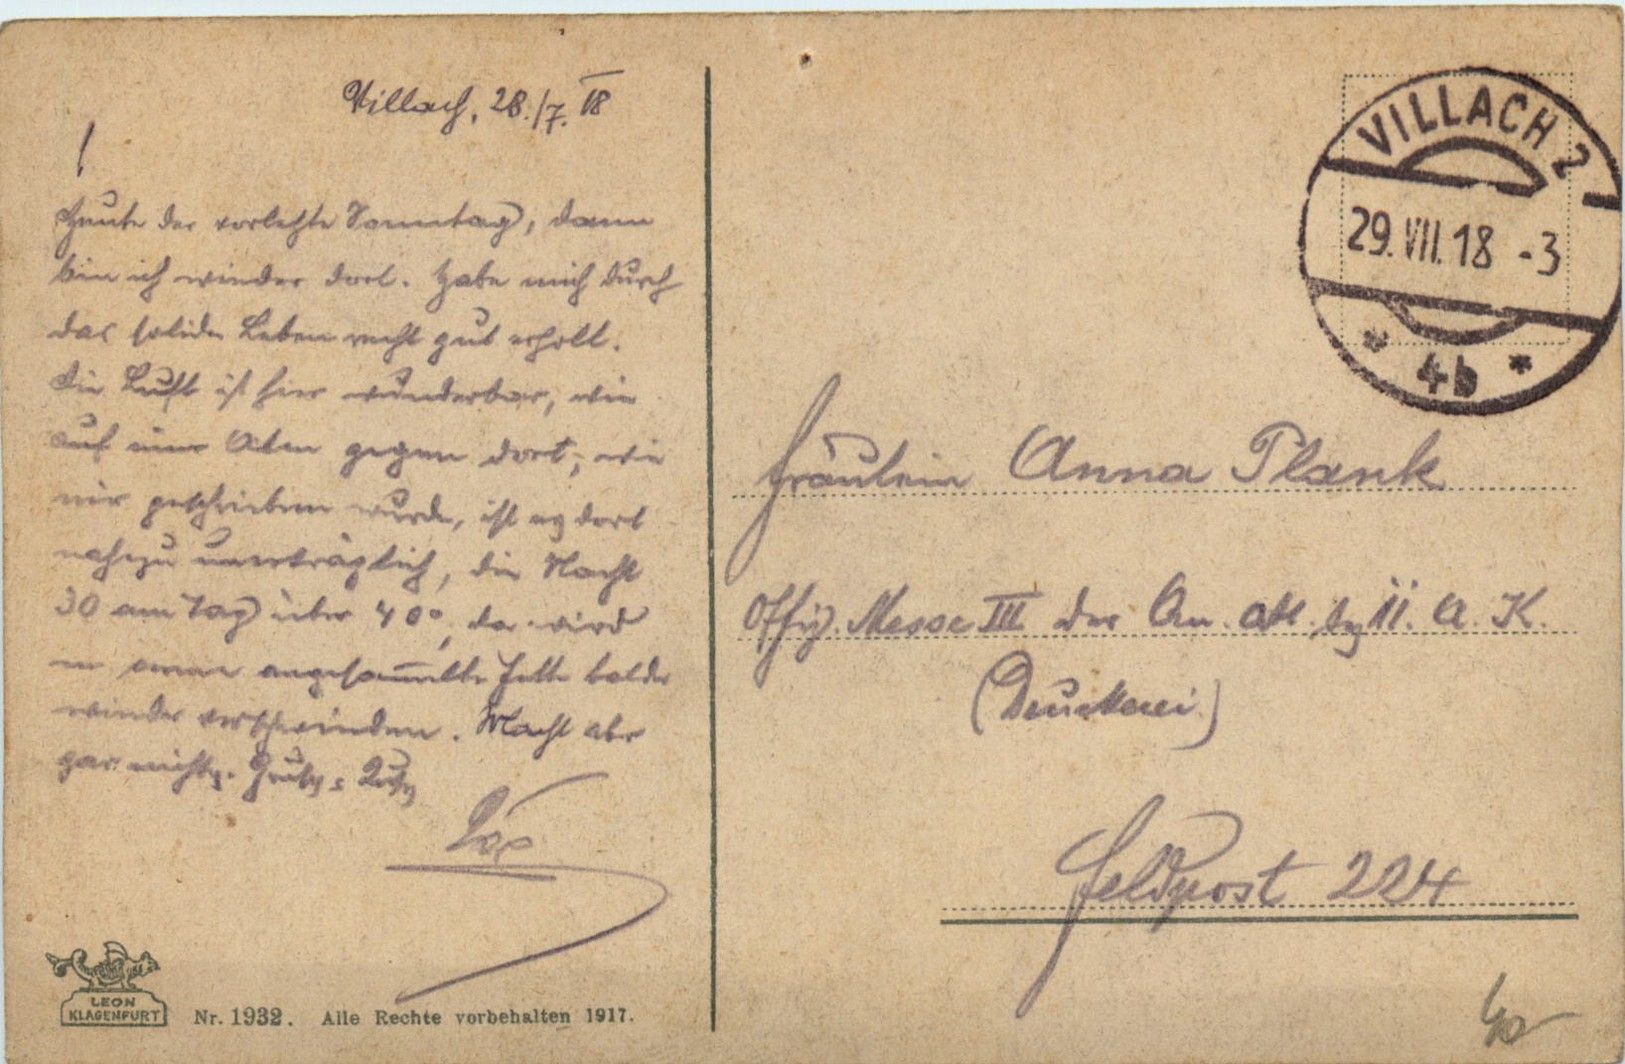 Villach, 28./7. 18
!
Heute der vorletzte Sonntag, dann
bin ich wieder dort. Habe mich durch
das solide Leben recht gut erholt.
Die Luft ist hier wunderbar, wie
auf einer Alm gegen dort, wie
mir geschrieben wurde, ist es dort
nahezu unerträglich, die Nacht
30 am Tag über 40°, da wird
angesammelte Fette balde
wieder verschwinden. Macht aber
gar nichts. Gruß
LEON
KLAGENFURT
Nr. 1932. Alle Rechte vorbehalten 1917.
VILLACH 2
29.VII.18 -3
* 4b *
Fräulein Anna Plank
Offiz. Messe III der 11. A. K.
(Druckerei)
Feldpost 224